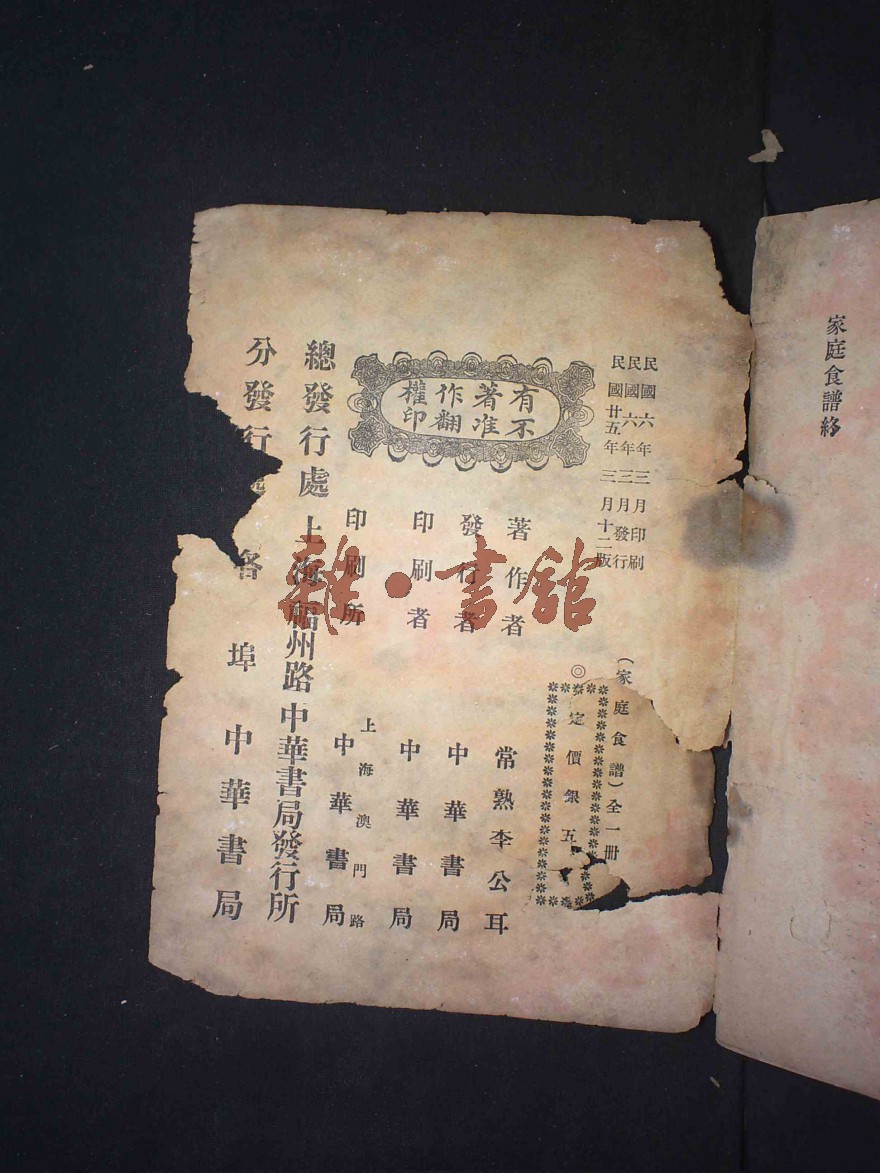 家庭食譜終
民國六年三月印刷
民國六年三月發行
民國廿五年三月十二版
(家庭食譜)全一冊
◎定價銀五
有著作權
不准翻印
著作者 常熟李公耳
發行者 中華書局
印刷者 中華書局
印刷所 上海澳門路
中華書局
總發行處 上海福州路中華書局發行所
分發行處 各埠中華書局
雜·書館